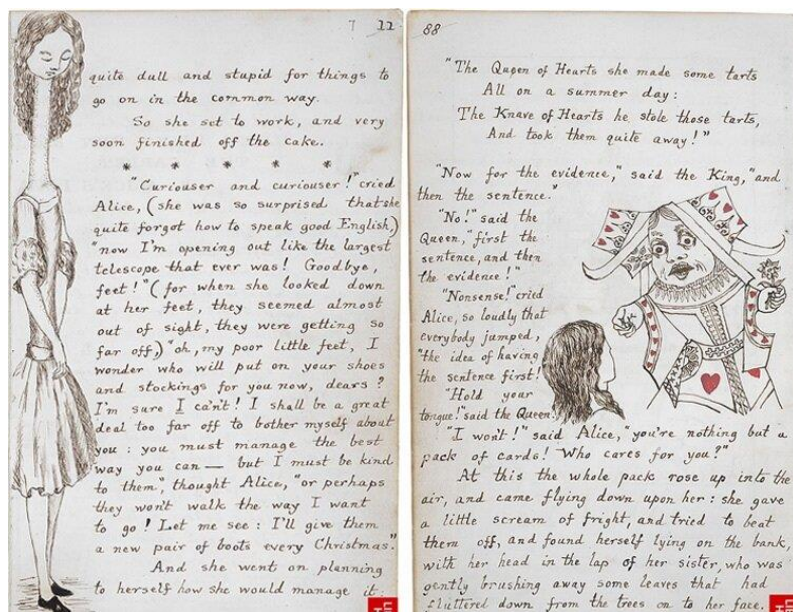 7 11
quite dull and stupid for things to
go on in the common way.
So she set to work, and very
soon finished off the cake.
* * * * *
"Curiouser and curiouser!" cried
Alice, (she was so surprised that she
quite forgot how to speak good English,)
"now I'm opening out like the largest
telescope that ever was! Goodbye,
feet!" (for when she looked down
at her feet, they seemed almost
out of sight, they were getting so
far off,) "oh, my poor little feet, I
wonder who will put on your shoes
and stockings for you now, dears?
I'm sure I can't! I shall be a great
deal too far off to bother myself about
you: you must manage the best
way you can — but I must be kind
to them", thought Alice, "or perhaps
they won't walk the way I want
to go! Let me see: I'll give them
a new pair of boots every Christmas."
And she went on planning
to herself how she would manage it
88
"The Queen of Hearts she made some tarts
All on a summer day:
The Knave of Hearts he stole those tarts,
And took them quite away!"
"Now for the evidence," said the King, "and
then the sentence."
"No!" said the
Queen, "first the
sentence, and then
the evidence!"
"Nonsense!" cried
Alice, so loudly that
everybody jumped,
"the idea of having
the sentence first!
"Hold your
tongue!" said the Queen.
"I won't!" said Alice, "you're nothing but a
pack of cards! Who cares for you?"
At this the whole pack rose up into the
air, and came flying down upon her: she gave
a little scream of fright, and tried to beat
them off, and found herself lying on the bank,
with her head in the lap of her sister, who was
gently brushing away some leaves that had
fluttered down from the trees on to her face.